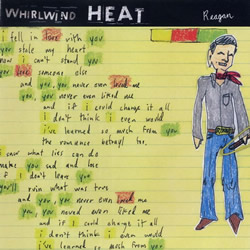 WHIRLWIND HEAT
Reagan
i fell in love with you
you stole my heart
now i can't stand you
you love someone else
and you, you never even loved me
you, you never even liked me
and if i could change it all
I don't think i even would
i've learned so much from you
the romance betrayl too.
i saw what lies can do
make you sad and use
if I don't leave you
you'll ruin what was true
and you, you never even loved me
you, you never even liked me
and if i could change it all
i don't think i even would
i've learned so much from you